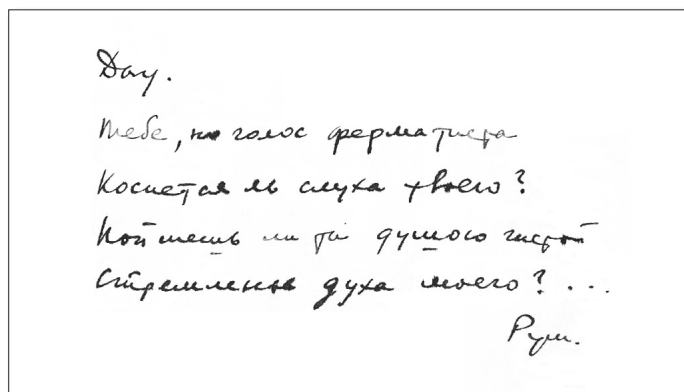 Дау.
Тебе, но голос ферматиста
Коснется ль слуха твоего?
Поймешь ли ты душою чистой
Стремленье духа моего? ...
Рум.